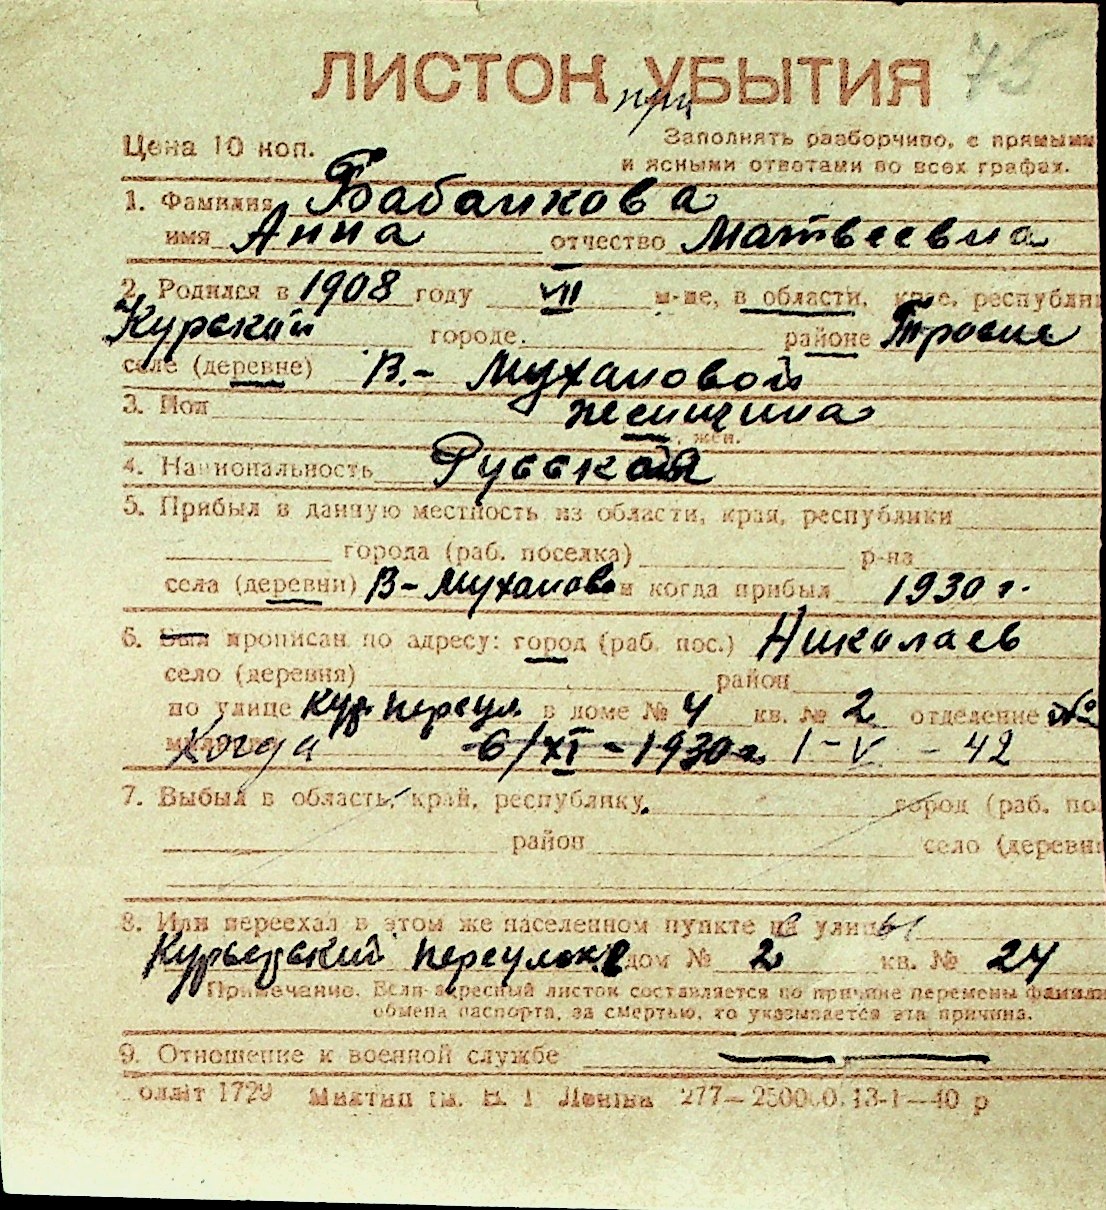 ЛИСТОК УБЫТИЯ 75
при
Цена 10 коп. Заполнять разборчиво, с прямыми
и ясными ответами во всех графах.
1. Фамилия Бабанкова
имя Анна отчество Матвеевна
2. Родился в 1908 году VII м-це, в области, крае, республи
Курской городе районе Тросне
селе (деревне) В.- Мухановой
3. Пол женщина
, жен.
4. Национальность Русская
5. Прибыл в данную местность из области, края, республики
города (раб. поселка) р-на
села (деревни) В-Муханово и когда прибыл 1930 г.
6. Был прописан по адресу: город (раб. пос.) Николаев
село (деревня) район
по улице Кур. переул. в доме № 4 кв. № 2 отделение №
Когда 6/XI - 1930 г. 1 - V - 42
7. Выбыл в область, край, республику город (раб. по
район село (деревн
8. Или переехал в этом же населенном пункте улицы
переулок дом № 2 кв. № 24
Примечание. Если адресный листок составляется по причине перемены фамили
обмена паспорта, за смертью, то указывается эта причина.
9. Отношение к военной службе
оллит 1729 Миктип ім. В. І Леніна 277—250000. 13-I—40 р